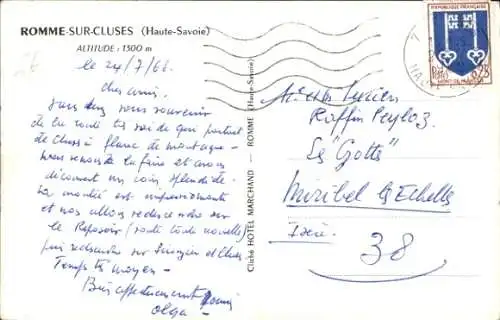 ROMME-SUR-CLUSES (Haute-Savoie)
ALTITUDE : 1300 m
le 24/7/68
chers amis.
vous souvenir
de la route très raide qui partait
de Cluses à flanc de montagne -
nous venons de la faire et avons
découvert un coin splendide.
La montée est impressionnante
et nous allons redescendre sur
le Reposoir (route toute nouvelle
qui redescend sur Scionzier et Cluses
Temps très moyen -
Bien affectueusement
Olga -
Cliché HOTEL MARCHAND - ROMME (Haute-Savoie)
REPUBLIQUE FRANÇAISE
POSTES
0,25
MONT-DE-MARSAN
Lucien
Raffin Peyloz
La "Gotte"
Miribel les Echelles
Isère
38